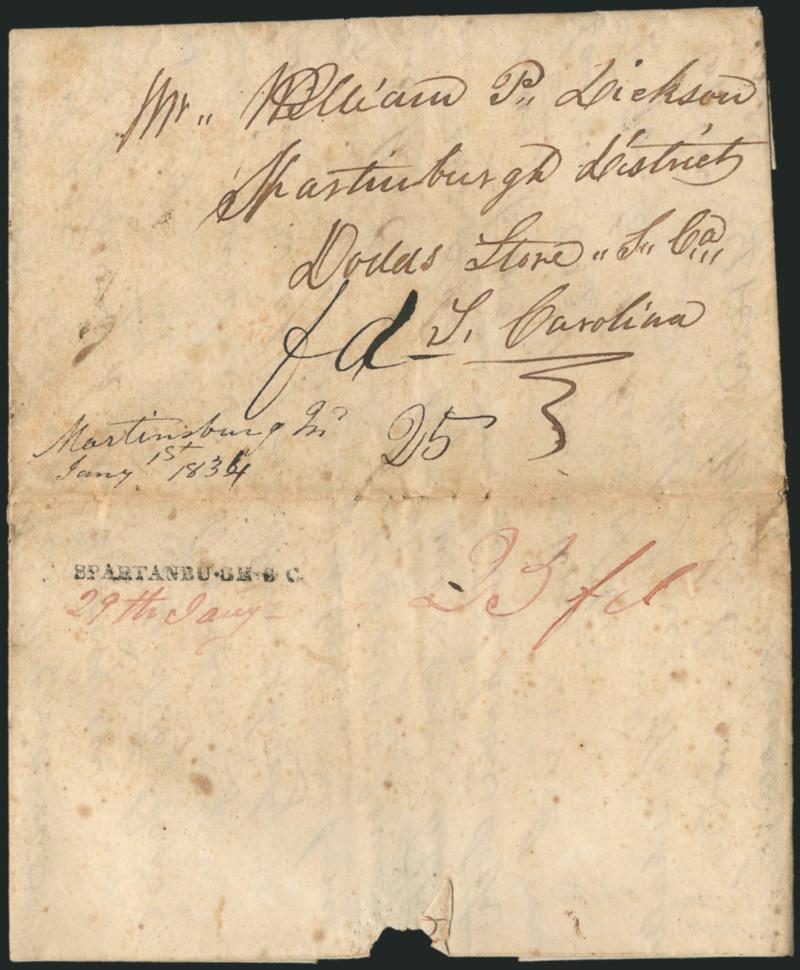 Mr,, William P,, Dickson
Spartinburgh district
Dodds Store ,,S,, Ca,,,
fd S. Carolina
Martinsburg
Jany 1st 1834
25
SPARTANBU·GH·S C.
29th Jany
fd